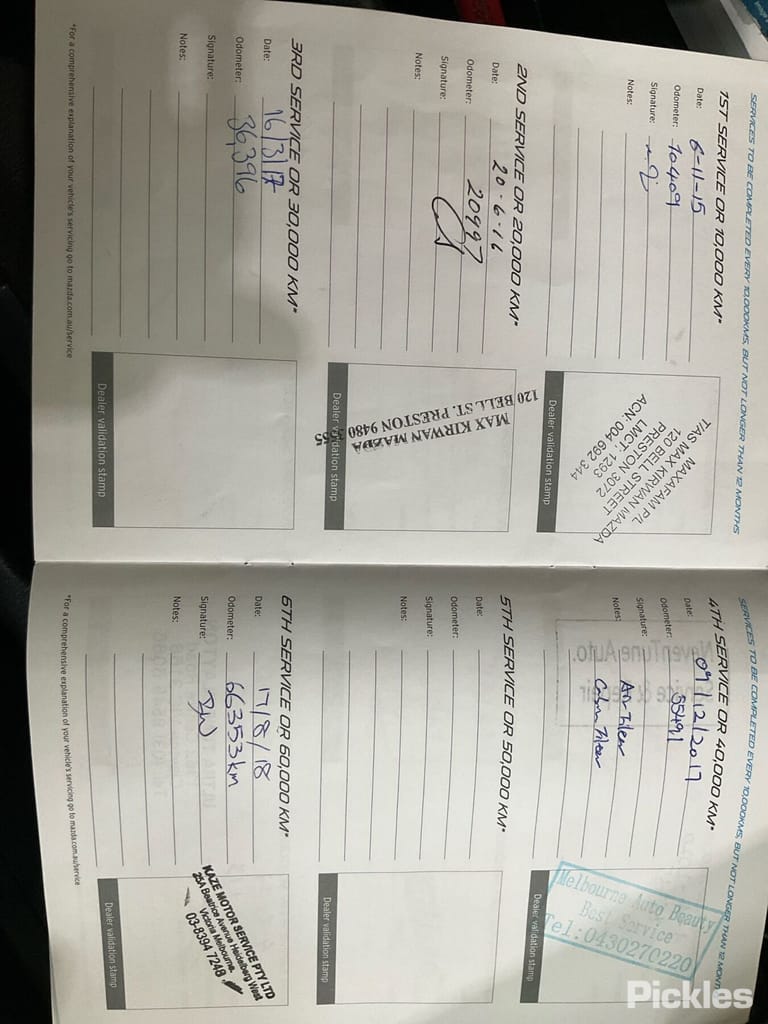 SERVICES TO BE COMPLETED EVERY 10,000KMS, BUT NOT LONGER THAN 12 MONTHS
1ST SERVICE OR 10,000 KM*
Date: 6-11-15
Odometer: 10409
Signature:
Notes:
MAXAFAM P/L
T/AS MAX KIRWAN MAZDA
120 BELL STREET
PRESTON 3072
LMCT: 1293
ACN: 004 692 344
Dealer validation stamp
2ND SERVICE OR 20,000 KM*
Date: 20.6.16
Odometer: 20997
Signature:
Notes:
MAX KIRWAN MAZDA
120 BELL ST. PRESTON 9480
Dealer validation stamp
3RD SERVICE OR 30,000 KM*
Date: 16/3/17
Odometer: 36,396
Signature:
Notes:
Dealer validation stamp
*For a comprehensive explanation of your vehicle's servicing go to mazda.com.au/service
SERVICES TO BE COMPLETED EVERY 10,000KMS, BUT NOT LONGER THAN 12 MONT
4TH SERVICE OR 40,000 KM*
Date: 09/12/2017
Odometer: 55491
Signature:
Notes: Air Filter
Cabin Filter
Melbourne Auto Beauty
Best Service
Tel:0430270220
Dealer validation stamp
5TH SERVICE OR 50,000 KM*
Date:
Odometer:
Signature:
Notes:
Dealer validation stamp
6TH SERVICE OR 60,000 KM*
Date: 17/8/18
Odometer: 66353km
Signature:
Notes:
KAZE MOTOR SERVICE PTY LTD
25A Beatrice Avenue Heidelberg West
Victoria Melbourne.
03-8394 7248
Dealer validation stamp
*For a comprehensive explanation of your vehicle's servicing go to mazda.com.au/service
Pickles